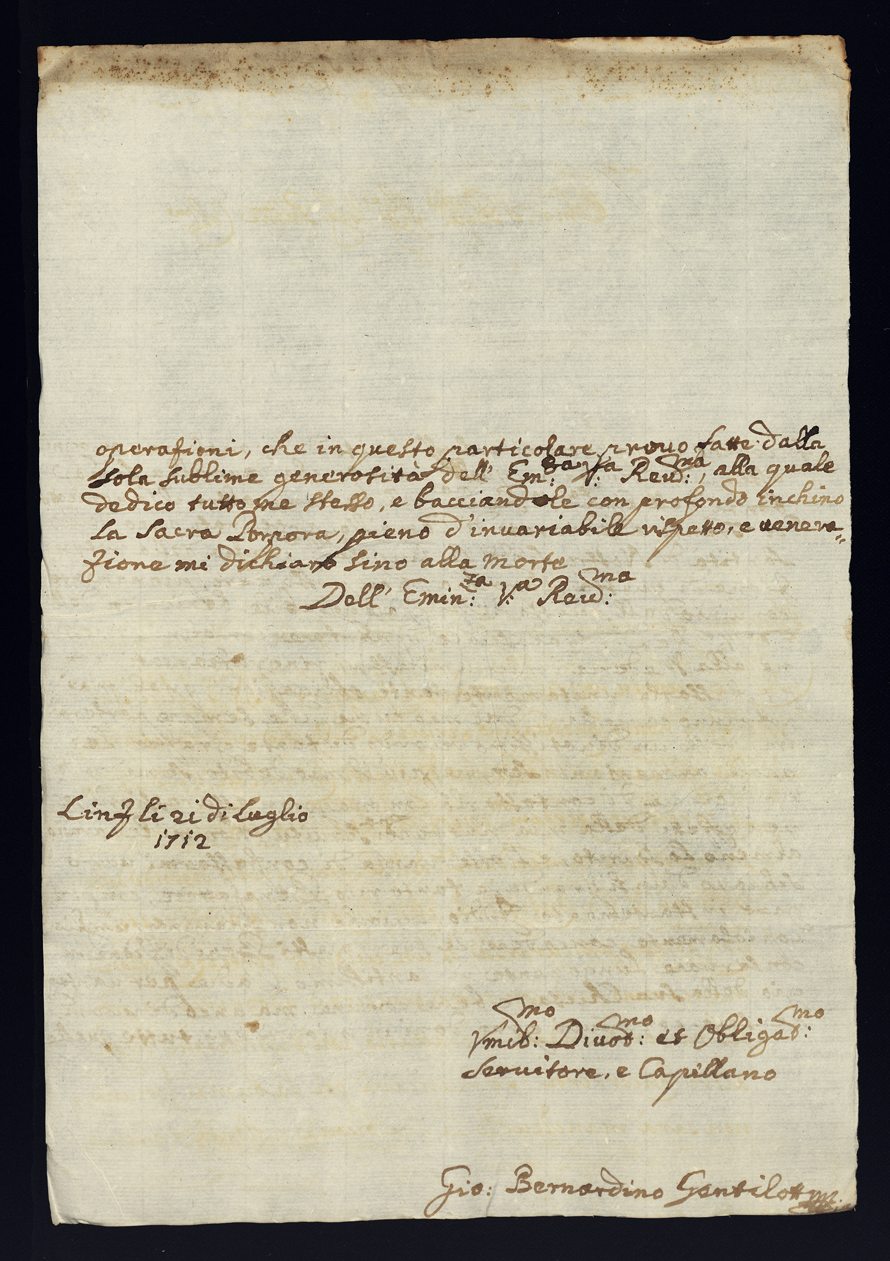 operazioni, che in questo particolare provo fatte dalla
sola sublime generosità dell' Em:za V:a Reud:ma, alla quale
dedico tutto me stesso, e bacciandole con profondo inchino
la Sacra Porpora, pieno d'invariabile rispetto, e venera=
zione mi dichiaro sino alla morte
Dell' Emin:za V:a Reud:ma
Linz li 21 di Luglio
1712
Vmil:mo Divot:mo et Obligat:mo
Servitore, e Capillano
Gio: Bernardino Gentilott